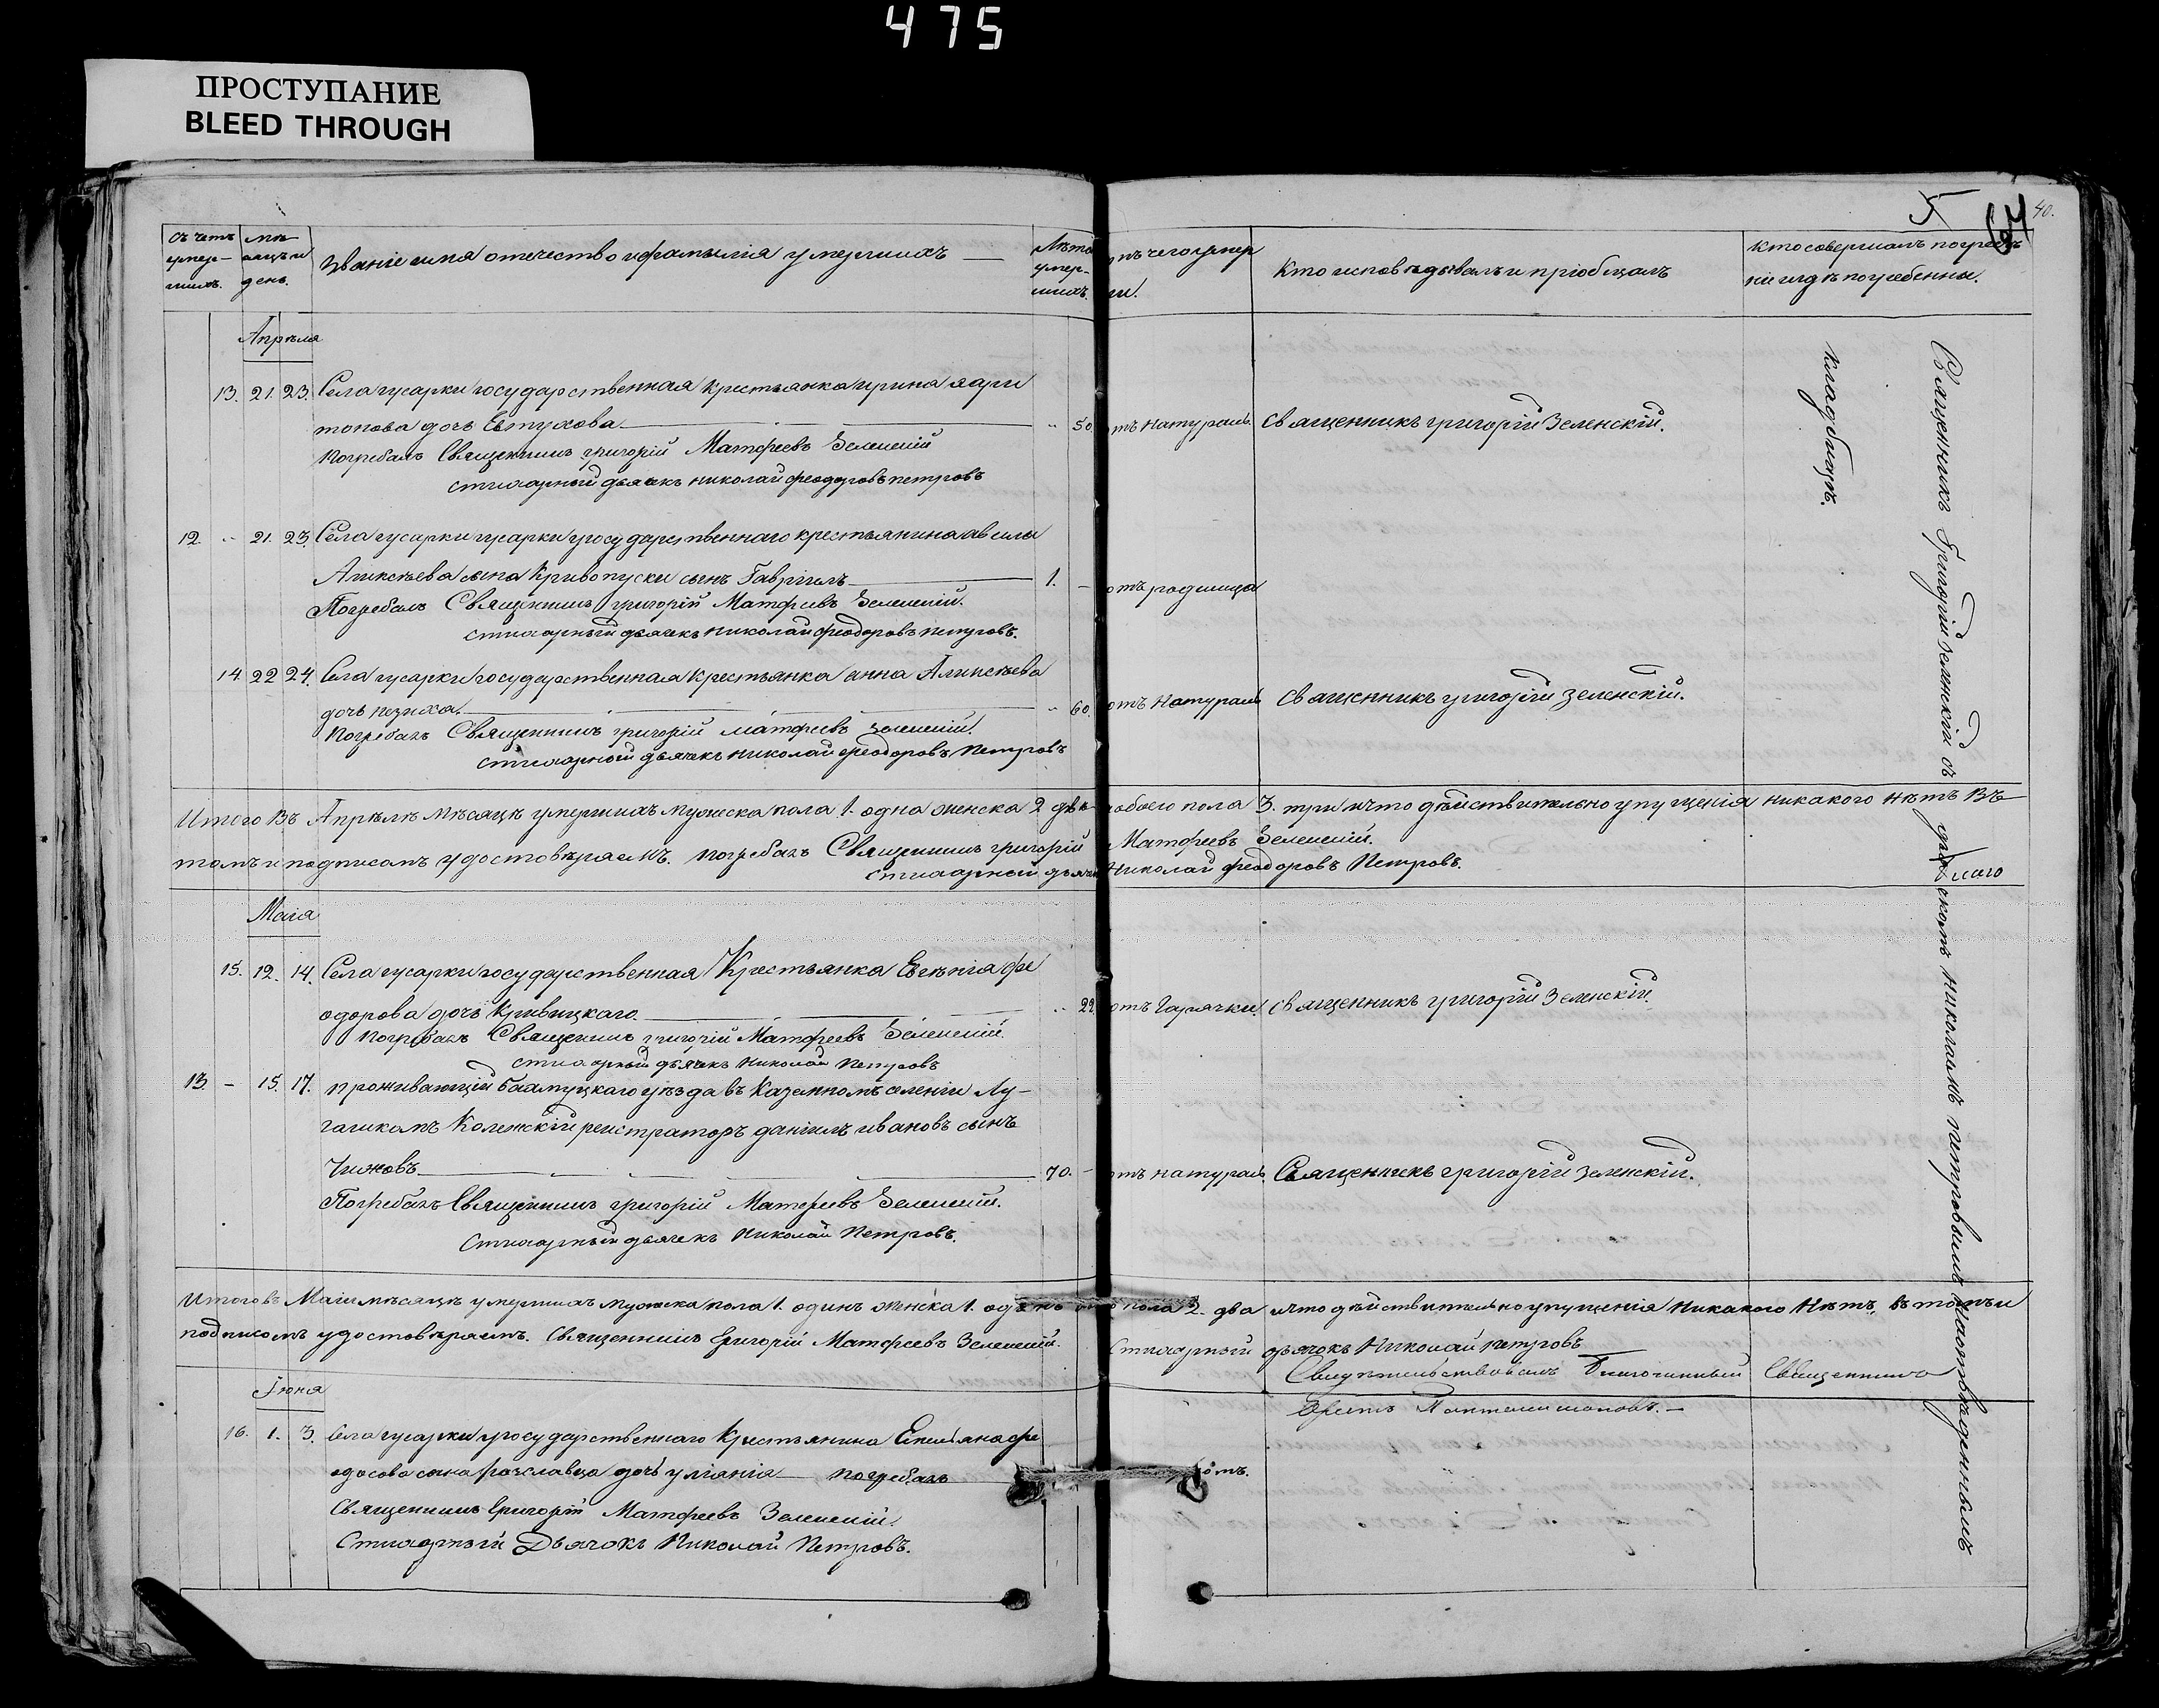 475
ПРОСТУПАНИЕ
BLEED THROUGH
5 64 40.
Счетъ умершихъ. Мѣсяцъ и день. Званіе имя отечество и фамилія умершихъ Лѣта умершихъ. Кто исповѣдывалъ и пріобщалъ Кто совершалъ погребеніе и гдѣ погребенны.
Апрѣля
13. 21. 23. Села гусарки государственная крестьянка ирина
дочь Евтухова 50 отъ натурал. Священникъ григорій Зеленскій.
Погребалъ Священникъ григорій Матфеевъ Зеленскій
стихарный дьячекъ николай феодоровъ петровъ
12. 21. 23. Села гусарки гусарки государственнаго крестьянина
Алексѣева сына Кривопуски сынъ Гавріилъ 1. отъ родимца
Погребалъ Священникъ григорій Матфеевъ Зеленскій.
стихарный дьячекъ николай феодоровъ петровъ.
14 22 24. Села гусарки государственная крестьянка анна Алексѣева
дочь 60. отъ натурал Священникъ григорій зеленскій.
Погребалъ Священникъ григорій матфеевъ зеленскій.
стихарный дьячекъ николай феодоровъ петровъ
Итого Въ Апрѣлѣ мѣсяцѣ умершихъ мужеска пола 1. одна женска 2 двѣ обоего пола 3. три что дѣйствительно упущенія никакого нѣтъ Въ
томъ и подписомъ удостовѣряемъ. погребалъ Священникъ григорій Матфеевъ Зеленскій.
стихарный дьячекъ Николай феодоровъ Петровъ.
Маія
15. 12. 14. Села гусарки государственная Крестьянка Евгенія фе
одорова дочь Кривицкаго 22 отъ Гарячки Священникъ григорій Зеленскій.
Погребалъ Священникъ григорій Матфеевъ Зеленскій.
стихарный дьячекъ Николай Петровъ
13. – 15. 17. проживающій Бахмуцкаго уѣзда въ Казенномъ селеніи Лу-
Колежскій регистраторъ даніилъ ивановъ сынъ
Чижовъ 70. отъ натурал. Священникъ григорій зеленскій.
Погребалъ Священникъ григорій Матфеевъ Зеленскій.
Стихарный дьячекъ Николай Петровъ.
Итого въ Маіи мѣсяцѣ умершихъ мужеска пола 1. одинъ женска 1. одна пола 2. два что дѣйствительно упущенія никакого Нѣтъ. въ томъ и
подписомъ удостовѣряемъ. Священникъ Григорій Матфеевъ Зеленскій. Стихарный дьячокъ Николай петровъ
Свидѣтельствовалъ Благочинный Священникъ
Іюня
16. 1. 3. Села гусарки государственнаго Крестьянина Емельяна фе
одосова сына дочь уліанія погребалъ
Священникъ Григорій Матфеевъ Зеленскій.
Стихарный Дьячокъ Николай Петровъ.
Священникъ Григорій Зеленскій съ николаемъ петровымъ
кладбищѣ.